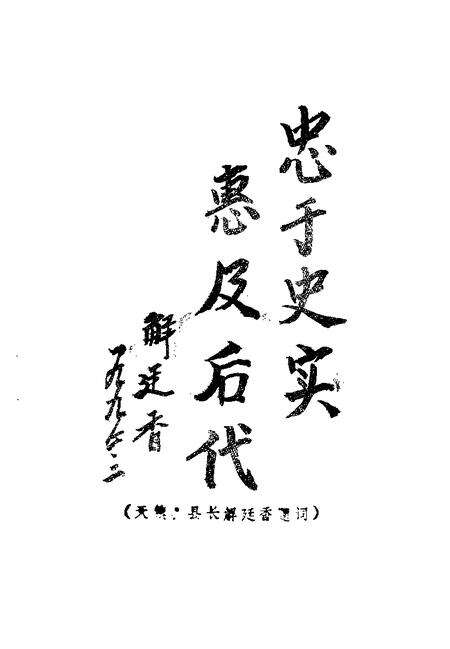 忠于史实
惠及后代
解廷香
一九九
(天 县长解廷香题词)